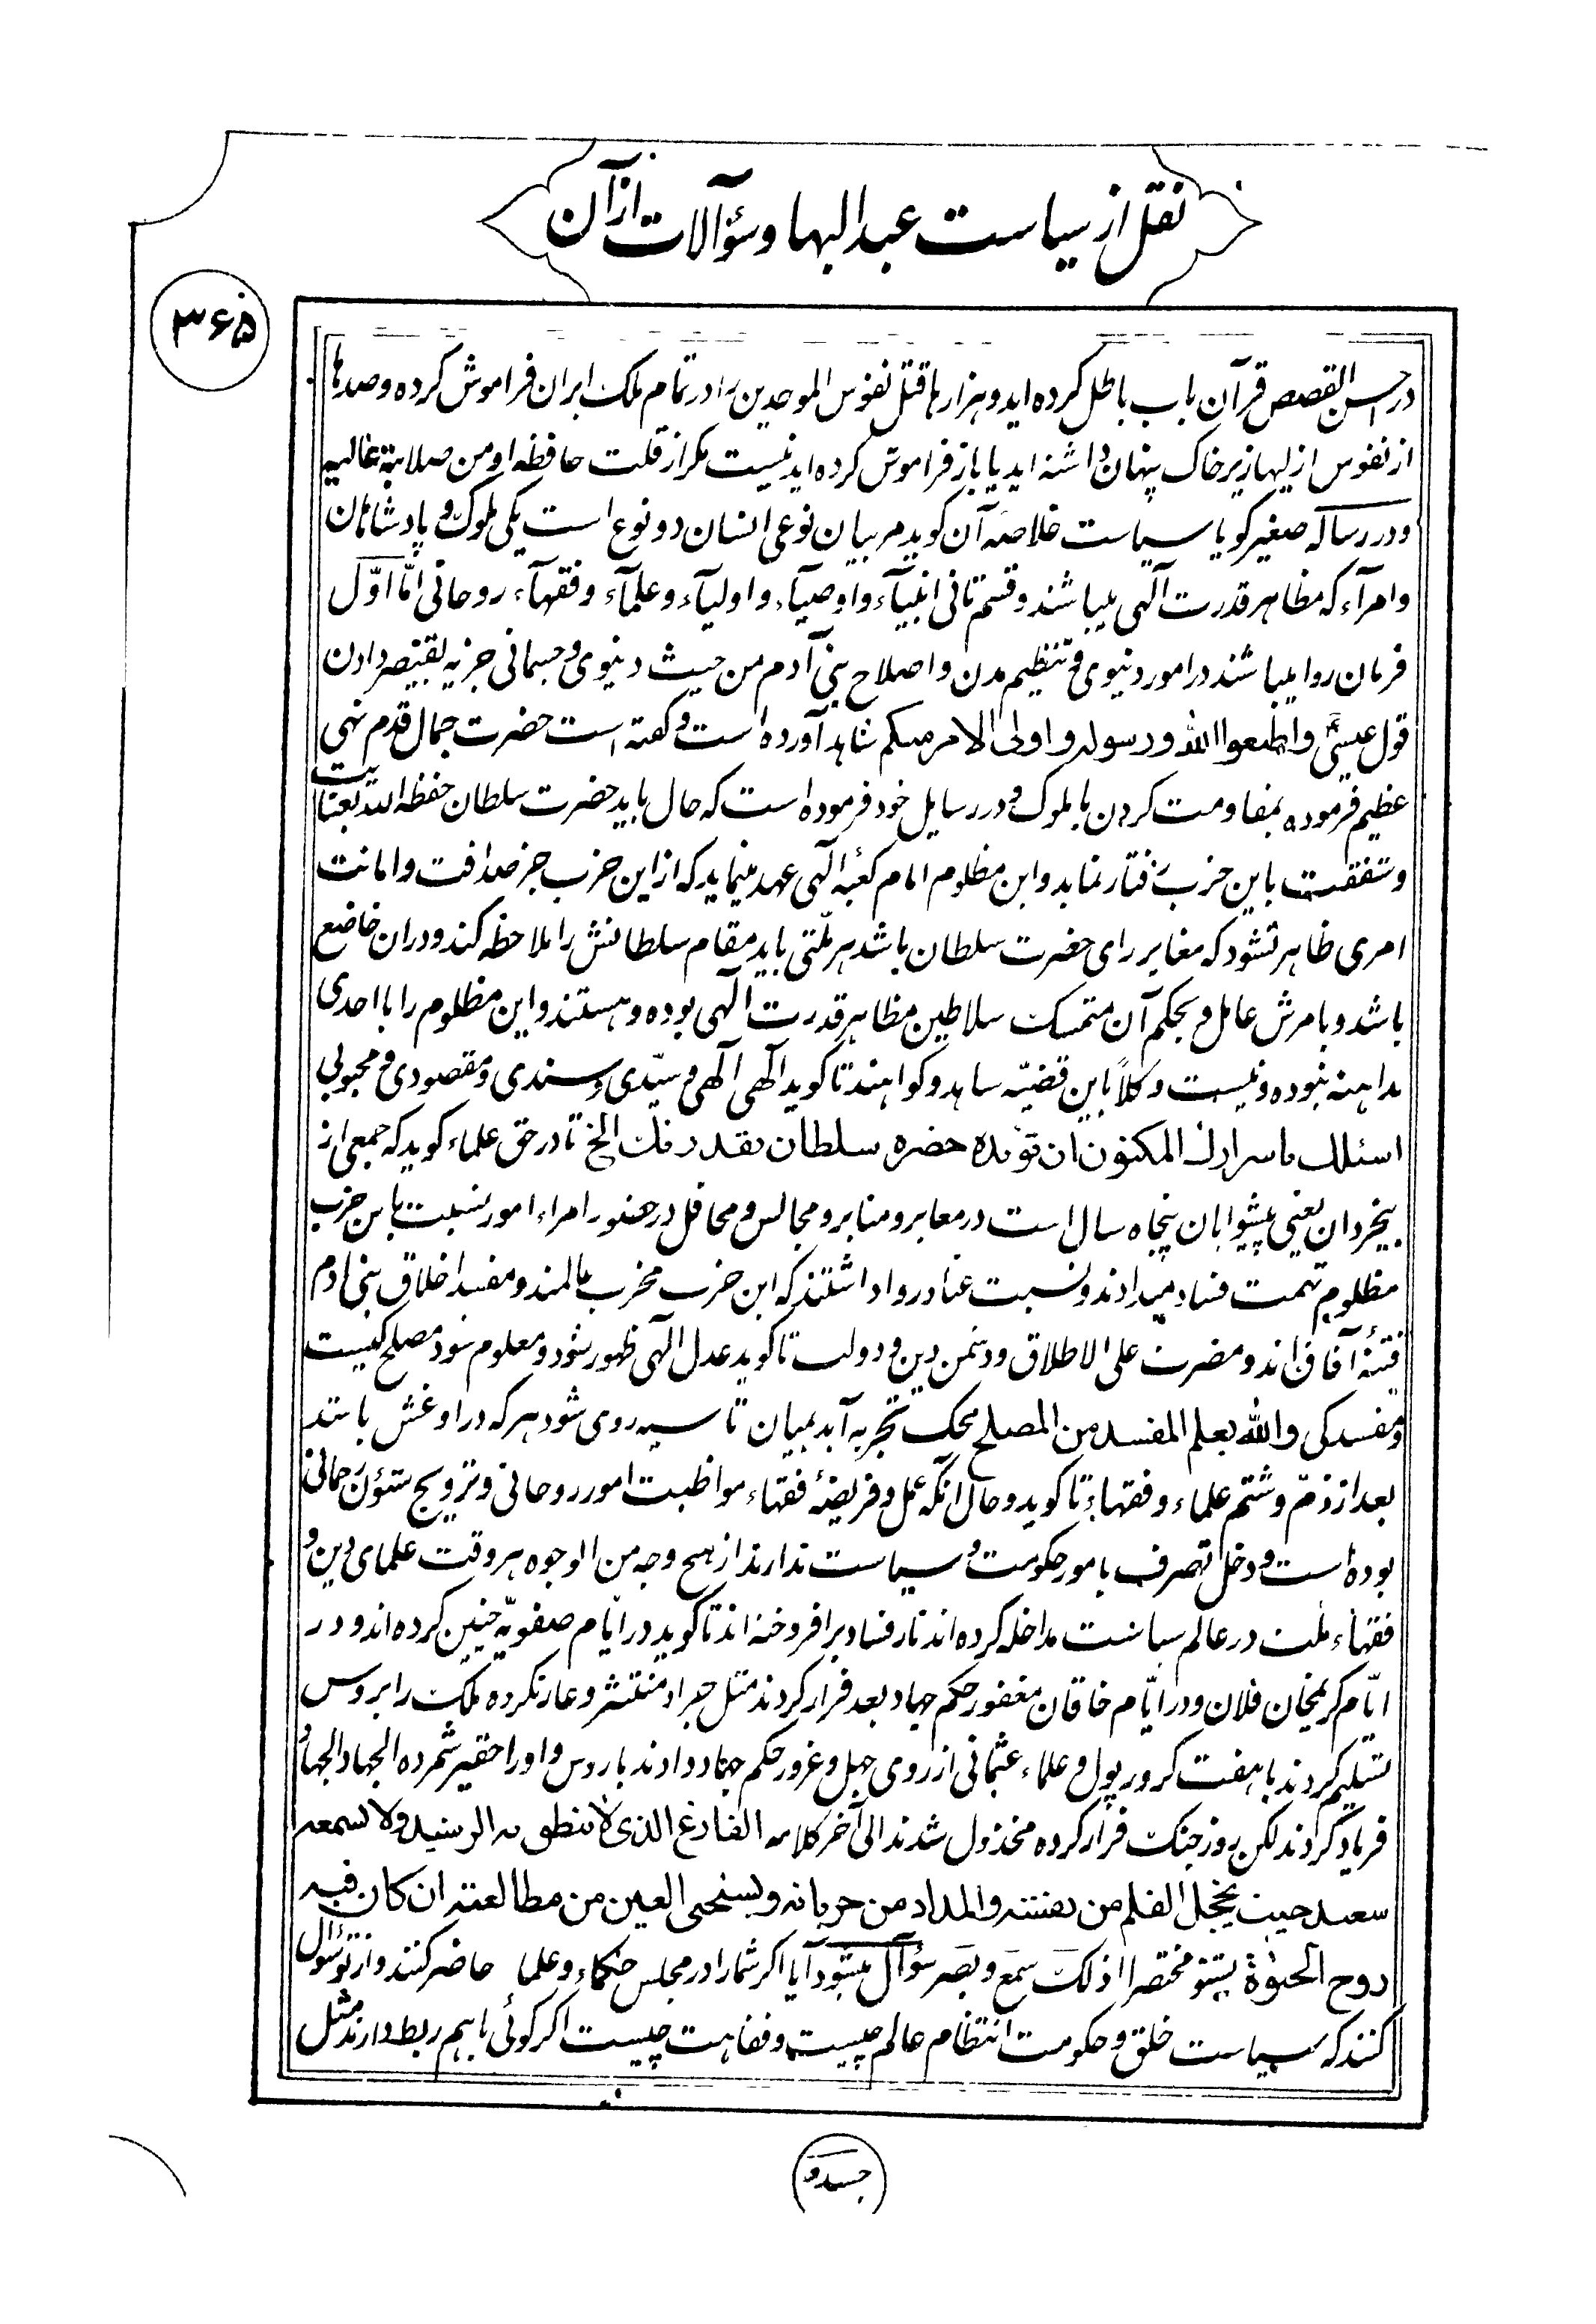 نقل از سیاست عبدالبها وسؤآلات از آن
۳۶۵
در احسن القصص قرآن باب باطل کرده اید و هزارها قتل نفوس الموحدین را در تمام ملک ایران فراموش کرده وصدها
از نفوس ازلیها زیر خاک پنهان داشته اید یا باز فراموش کرده اید نیست مکر از قلت حافظه او من صلابة عالیه
ودر رساله صغیر کویا سیاست خلاصه آن کوید مربیان نوعی انسان دو نوع است یکی ملوک و پادشاهان
وامرآء که مظاهر قدرت آلهی میباشند وقسم ثانی انبیآء واوصیآء واولیآء وعلمآء وفقهآء روحانی امّا اوّل
فرمان روا میباشند در امور دنیوی و تنظیم مدن واصلاح بنی آدم من حیث دنیوی و جسمانی جزیه بقیصر دادن
قول عیسیٰ واطیعوا الله ورسوله واولی الامر منکم شاهد آورده است و کفته است حضرت جمال قدم نهی
عظیم فرموده بمقاومت کردن با ملوک و در رسایل خود فرموده است که حال باید حضرت سلطان حفظه الله بعنایت
وشفقت باین حزب رفتار نماید واین مظلوم امام کعبه الهی عهد مینماید که از این حزب جز صداقت وامانت
امری ظاهر نشود که مغایر رای حضرت سلطان باشد هر ملّتی باید مقام سلطانش را ملاحظه کند ودران خاضع
باشد وبامرش عامل و بحکم آن متمسک سلاطین مظاهر قدرت آلهی بوده وهستند واین مظلوم را با احدی
مداهنه نبوده ونیست وکلاً باین قضیّه شاهد وکواهند تا کوید آلهی آلهی و سیّدی و سندی و مقصودی و محبوبی
اسئلک باسرارک المکنون ان تؤیده حضره سلطان بقدرتک الخ تا در حق علماء کوید که جمعی از
بیخردان یعنی پیشوایان پنجاه سال است در معابر و منابر و مجالس و محافل در حضور امراء امور نسبت باین حزب
مظلوم تهمت فساد میدادند ونسبت عناد روا داشتند که این حزب مخرب عالمند ومفسد اخلاق بنی ادم
فتنهٔ آفاق اند ومضرت علی الاطلاق ودشمن دین و دولت تا کوید عدل الهی ظهور شود و معلوم شود مصلح کیست
ومفسد کی والله یعلم المفسد من المصلح محک تجربه آید بمیان تا سیه روی شود هر که در او غش باشد
بعد از ذمّ وشتم علماء وفقهاء تا کوید وحال انکه عمل و فریضهٔ فقهاء مواظبت امور روحانی و ترویج شئون رحمانی
بوده است و دخل تصرف بامور حکومت و سیاست ندارند از هیچ وجه من الوجوه هر وقت علمای دین و
فقهاء ملت در عالم سیاست مداخله کرده اند نار فساد برافروخته اند تا کوید در ایّام صفویّه چنین کرده اند و در
ایّام کریمخان فلان ودر ایّام خاقان مغفور حکم جهاد بعد فرار کردند مثل جراد منتشر و عار نکرده ملک را بروس
تسلیم کردند با هفت کرور پول و علماء عثمانی از روی جهل و غرور حکم جهاد دادند باروس واو را حقیر شمرده الجهاد الجهاد
فریاد کردند لکن روز جنک فرار کرده مخذول شدند الی آخر کلامه الفارغ الذی لا ینطق به الرشید ولا یسمعه
سعید حیث یخجل القلم من نفثته والمداد من جریانه ویستحی العین من مطالعته ان کان فیه
روح الحیوٰة بشنو مختصرا اذلک سمع وبصر سؤآل میشود آیا اکر شما را در مجلس حکماء وعلما حاضر کنند واز تو سؤال
کنند که سیاست خلق و حکومت انتظام عالم چیست وفقاهت چیست اکر کوئی باهم ربط دارند مثل